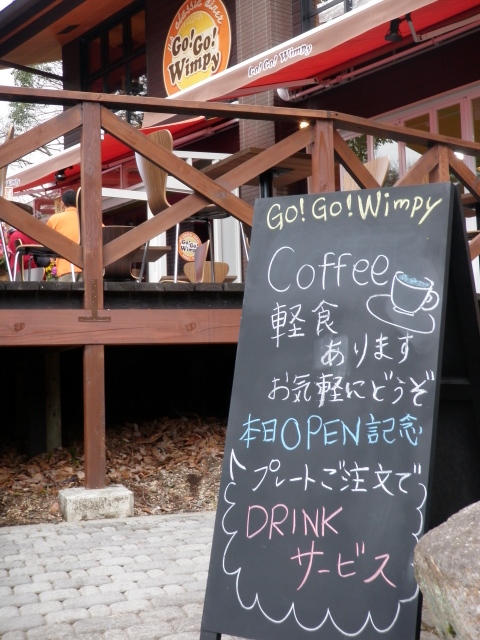 classic diner
Go! Go!
Wimpy
Go! Go! Wimpy
Go! Go!
Wimpy
Go! Go! Wimpy
Coffee
軽食
あります
お気軽にどうぞ
本日OPEN記念
プレートご注文で
DRINK
サービス